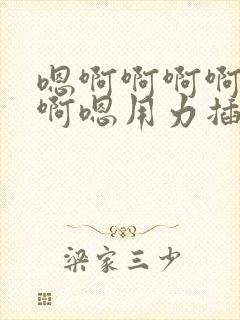 嗯啊啊啊啊
啊嗯用力插
梁家三少